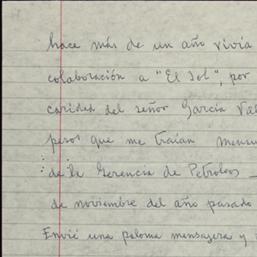 hace más de un año vivía
colaboración a "El Sol", por
caridad del señor García Val
pesos que me traían mensu
de la Gerencia de Petroleos —
de noviembre del año pasado
Envié una paloma mensajera y